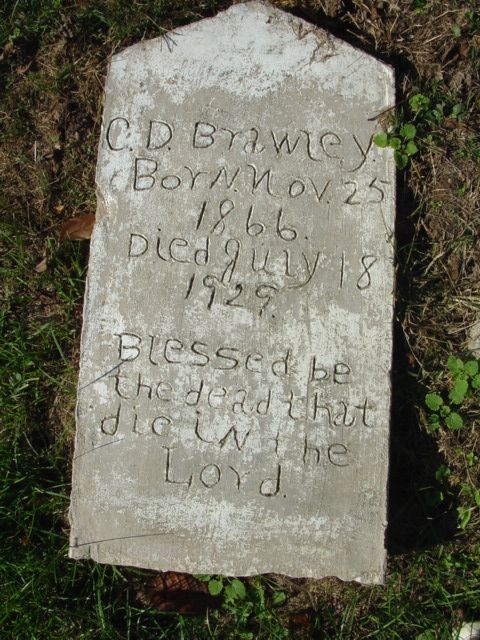 C. D. Brawley.
Born. Nov. 25
1866.
Died July 18
1929.
Blessed be
the dead that
die in the
Lord.